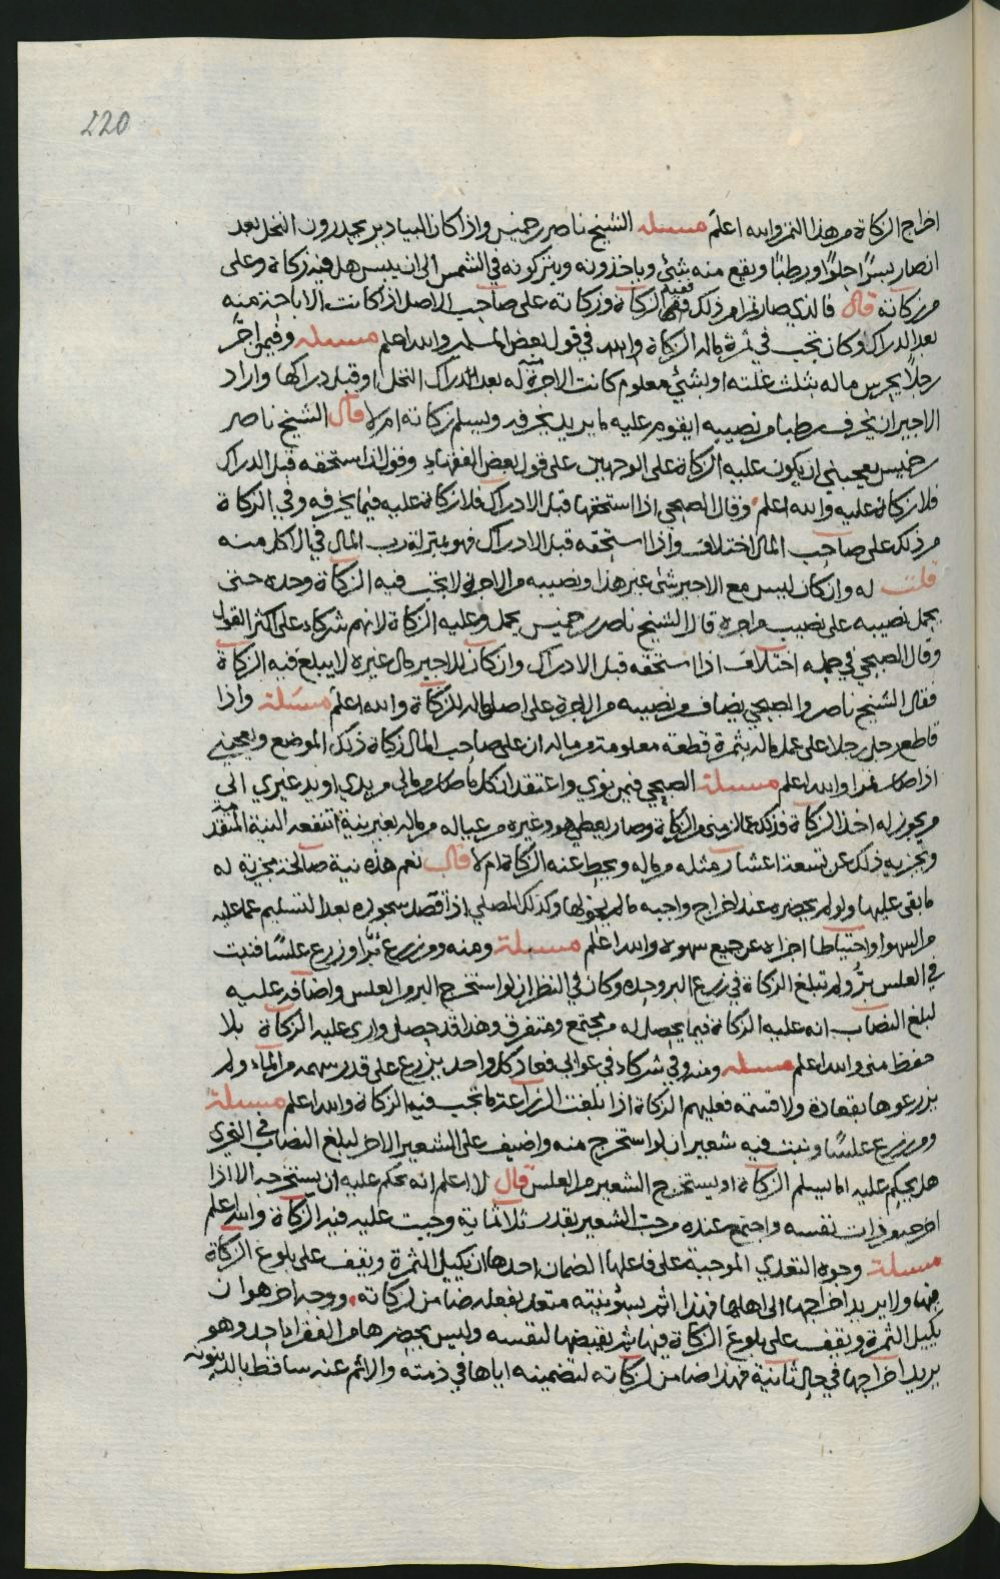 220
اخراج الزكاة من هذا التمر والله اعلم مسئله الشيخ ناصر بن خميس واذا كان البيادير يجدرون النخل بعد
ان صار بسرًا جلوًا ورطبًا ويقع منه شئ وياخذونه ويتركونه في الشمس الى ان ييبس هل فيه زكاة وعلى
من زكاته قال فالذي صار تمرا من ذلك ففيه الزكاة وزكاته على صاحب الاصل اذا كانت الاباحة منه
بعد الدراك وكان تجب في ثمرة ماله الزكاة في قول بعض المسلمين والله اعلم مسئله وفيمن اجر
رجلًا يحرس ماله بثلث غلته او بشئ معلوم كانت الاجرة له بعد الدراك النخل او قبل دراكها واراد
الاجير ان يخرف رطبا من نصيبه ايقوم عليه ما يريد يخرفه ويسلم زكاته ام لا قال الشيخ ناصر
بن خميس يعجبني ان يكون عليه الزكاة على الوجهين على قول بعض الفقهاء وقول اذا استحقه قبل الدراك
فلا زكاة عليه والله اعلم وقال الصبحي اذا استحقها قبل الادراك فلا زكاة عليه فيما يخرفه وفي الزكاة
من ذلك على صاحب المال اختلاف واذا استحقه قبل الادراك فهو بمنزلة رب المال في الاكل منه
قلت له وان كان ليس مع الاجير شئ غير هذا ونصيبه من الاجرة لا تجب فيه الزكاة وحده حتى
يحمل نصيبه على نصيب من اجره قال الشيخ ناصر بن خميس يحمل وعليه الزكاة لانهم شركاء على اكثر القول
وقال الصبحي في حمله اختلاف اذا استحقه قبل الادراك وان كان للاجير مال غيره لا يبلغ فيه الزكاة
فقال الشيخ ناصر والصبحي يضاف نصيبه من الاجرة على اصل ماله للزكاة والله اعلم مسئلة واذا
قاطع رجل رجلا على عمل ماله بثمرة قطعة معلومة من ماله ان على صاحب المال زكاة ذلك الموضع ويعجبني
اذا صار تمرا والله اعلم مسئلة الصبحي فيمن نوى واعتقد ان كل ما صار من مالي من يدي او يد غيري الى
من يجوز له اخذ الزكاة فذلك عما لزمني من الزكاة وصار يعطي هو وغيره من عياله من ماله بغير نية اتنفعه النية المتقدمة
وتجزيه ذلك عن تسعة اعشار مثله من ماله ويحط عنه الزكاة ام لا قال نعم هذه نية صالحة مجزية له
ما بقي عليها ولو لم يحضره عند اخراج واجبه ما لم يحولها وكذلك المصلي اذا قصد سجوده بعد التسليم عما عليه
من السهو او احتياطا اجزاه عن جميع سهوه والله اعلم مسئلة ومنه ومن زرع برًّا وزرع علسًا فنبت
في العلس برٌّ ولم تبلغ الزكاة في زرع البر وحده وكان في النظر ان لو استخرج البر من العلس واضافه عليه
لبلغ النصاب انه عليه الزكاة فيما يحصل له من مجتمع ومتفرق وهذا قد حصل وارى عليه الزكاة بلا
حفظ مني والله اعلم مسئله ومنه وفي شركاء في عوابي فعاد كل واحد يزرع على قدر سهمه من الماء ولم
يزرعوها بقعادة ولا قسمة فعليهم الزكاة اذا بلغت الزراعة ما تجب فيه الزكاة والله اعلم مسئلة
ومن زرع علسًا ونبت فيه شعير ان لو استخرج منه واضيف على الشعير الاخر لبلغ النصاب في التحري
هل يحكم عليه اما يسلم الزكاة او يستخرج الشعير من العلس قال لا اعلم انه يحكم عليه ان يستخرجه الا اذا
اخرجه من ذات نفسه واجتمع عنده من حب الشعير بقدر ثلاثماية وجبت عليه فيه الزكاة والله اعلم
مسئلة وجوه التعدي الموجبة على فاعلها الضمان احدها ان يكيل الثمرة ويقف على بلوغ الزكاة
فيها ولا يريد اخراجها الى اهلها فهذا اثم بسوء نيته متعد بفعله ضامن لزكاته ووجه اخر هو ان
يكيل الثمرة ويقف على بلوغ الزكاة فيها ثم يقبضها لنفسه وليس يحضرها من الفقراء احد وهو
يريد اخراجها في حال ثانية فهذا ضامن لزكاته لتضمينه اياها في ذمته والاثم عنه ساقط بالدينونة